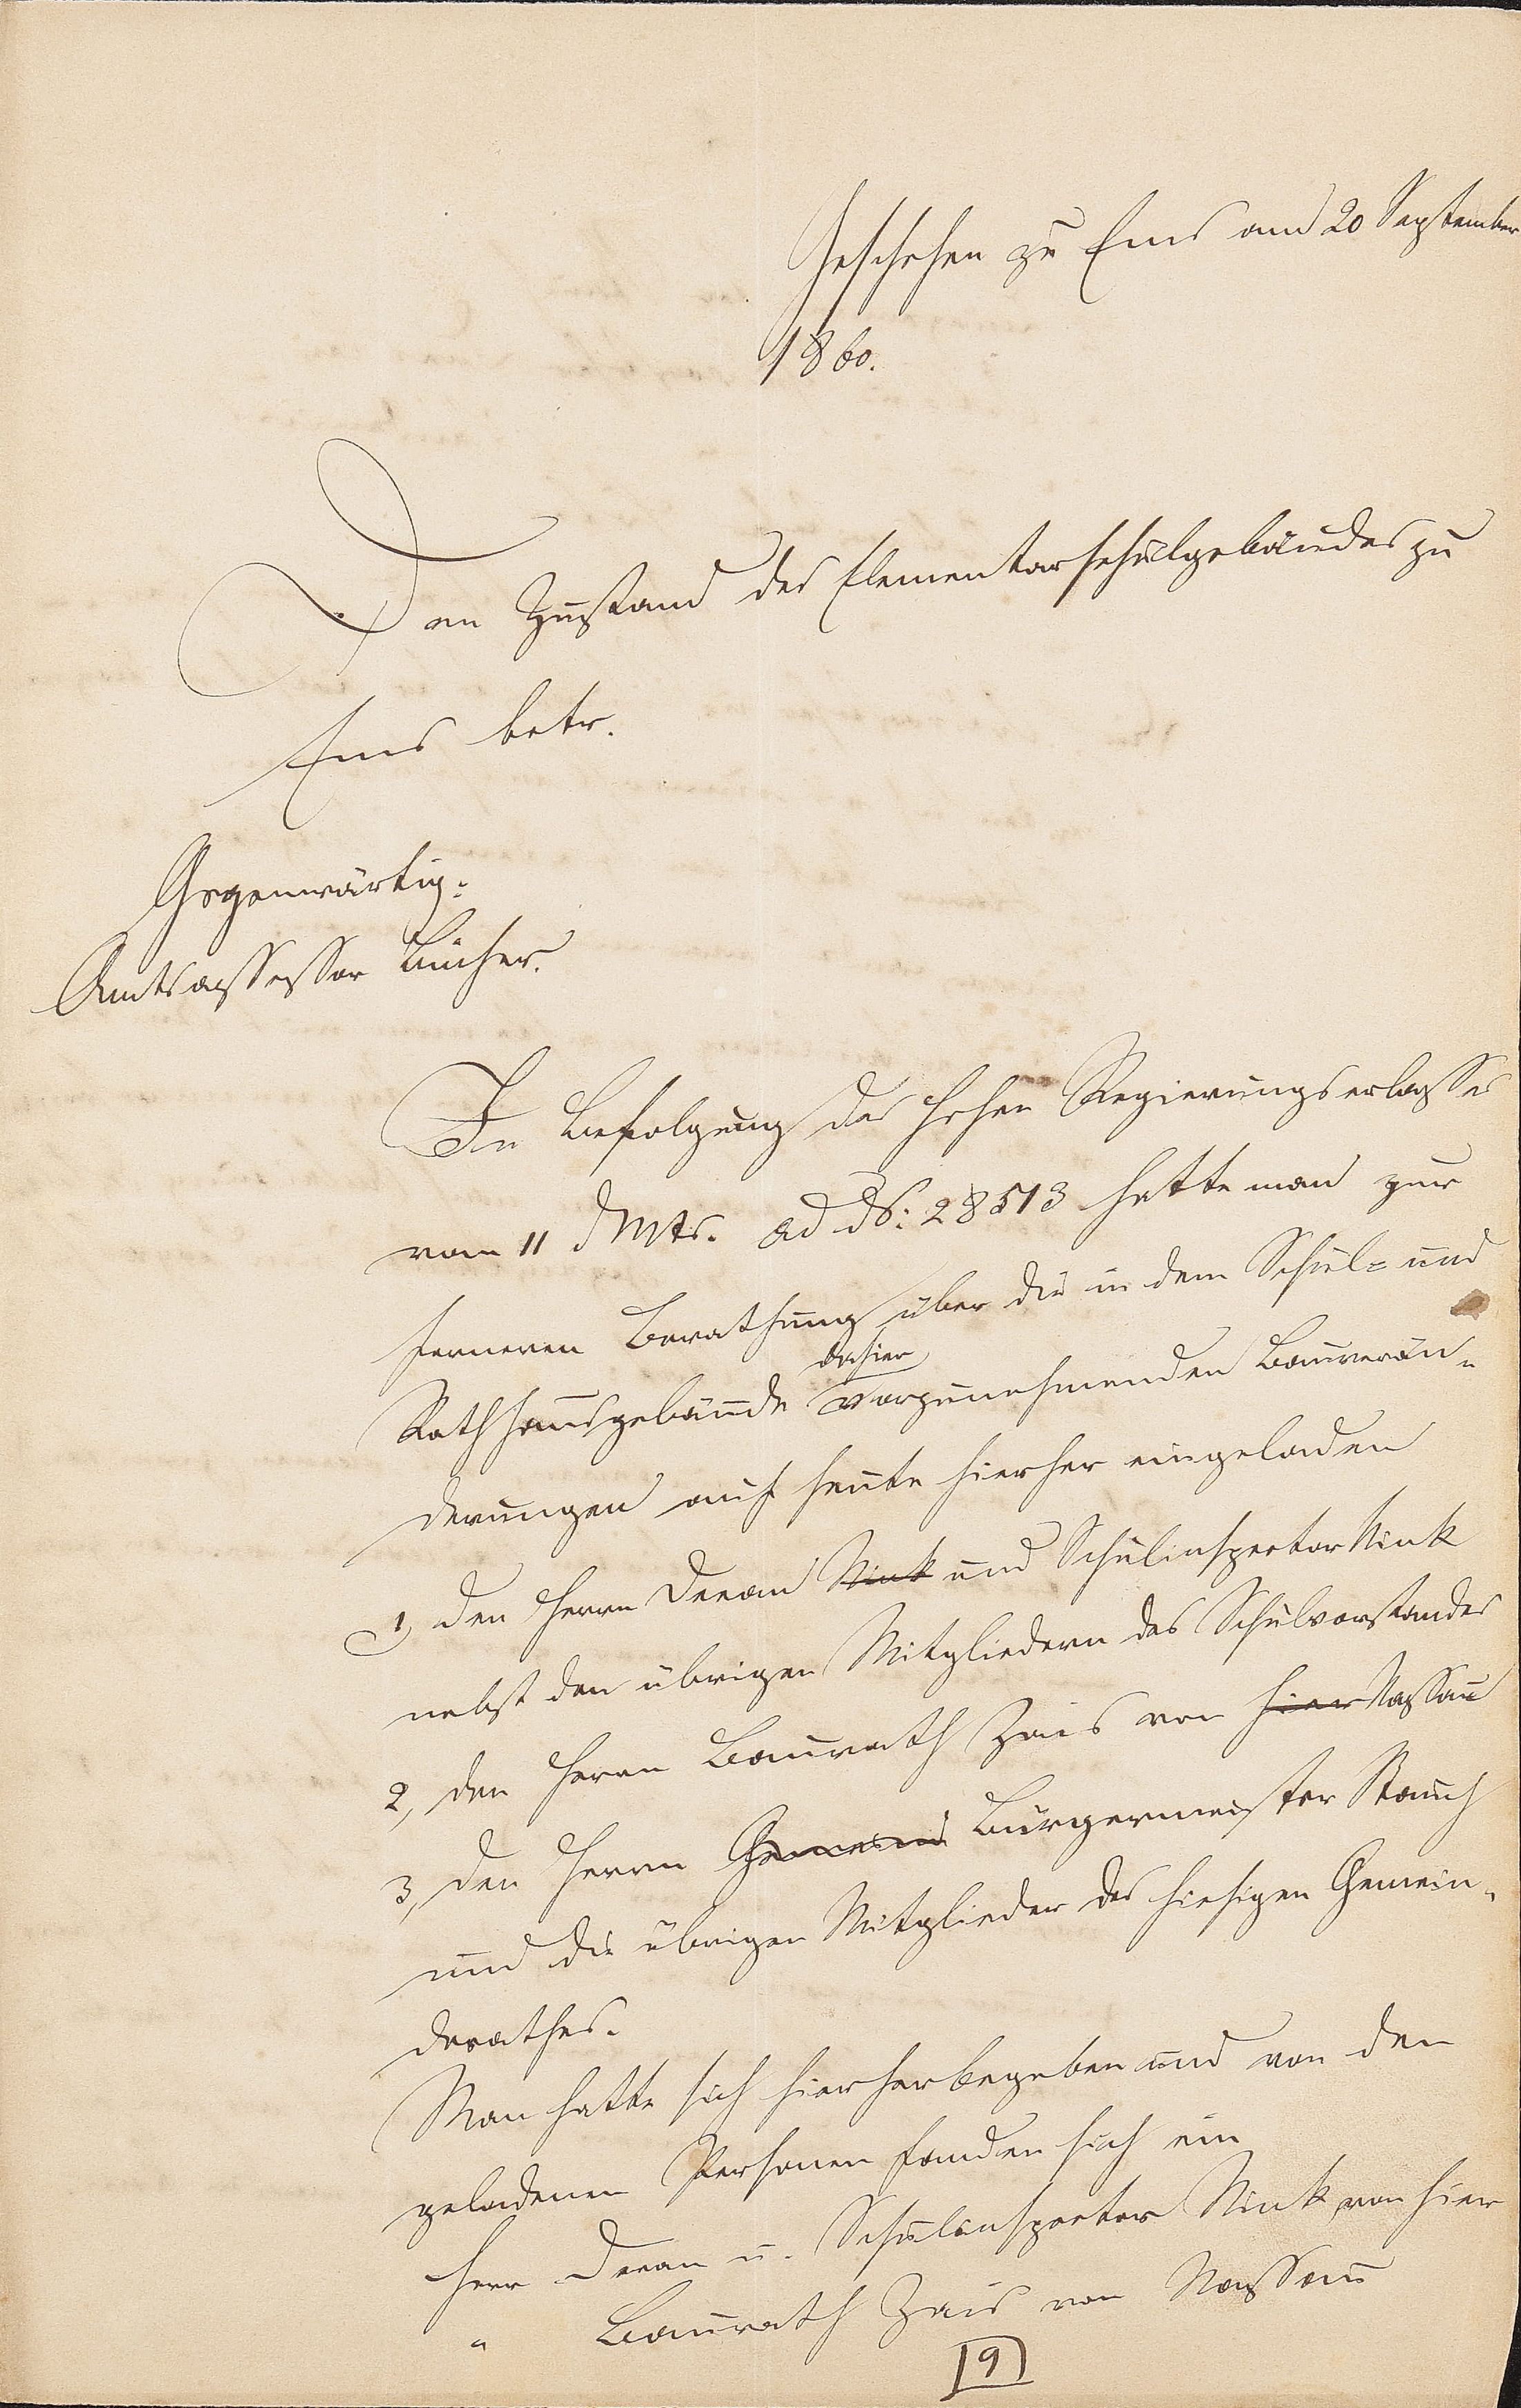 Geschehen zu Ems am 20 September
1860.
Den Zustand des Elementarschulgebäudes zu
Ems betr.
Gegenwärtig:
Amtsassessor Bücher.
In Befolgung des hohen Regierungserlasses
vom 11 d Mts. ad : 28513 hatte man zur
ferneren Berathung über die in dem Schul- und
dahier
Rathhausgebäude vorzunehmenden Bauverän-
derungen auf heute hierher eingeladen
1, den Herrn Decan Nink und Schulinspector Nink
nebst den übrigen Mitgliedern des Schulvorstandes
2, den Herrn Baurath Zais von hier Nassau
3, den Herrn Gemeind Bürgermeister Stauch
und die übrigen Mitglieder des hiesigen Gemein-
derathes.
Man hatte sich hierher begeben und von den
geladenen Personen fanden sich ein
Herr Decan u. Schulinspector Nink von hier
" Baurath Zais von Nassau
9